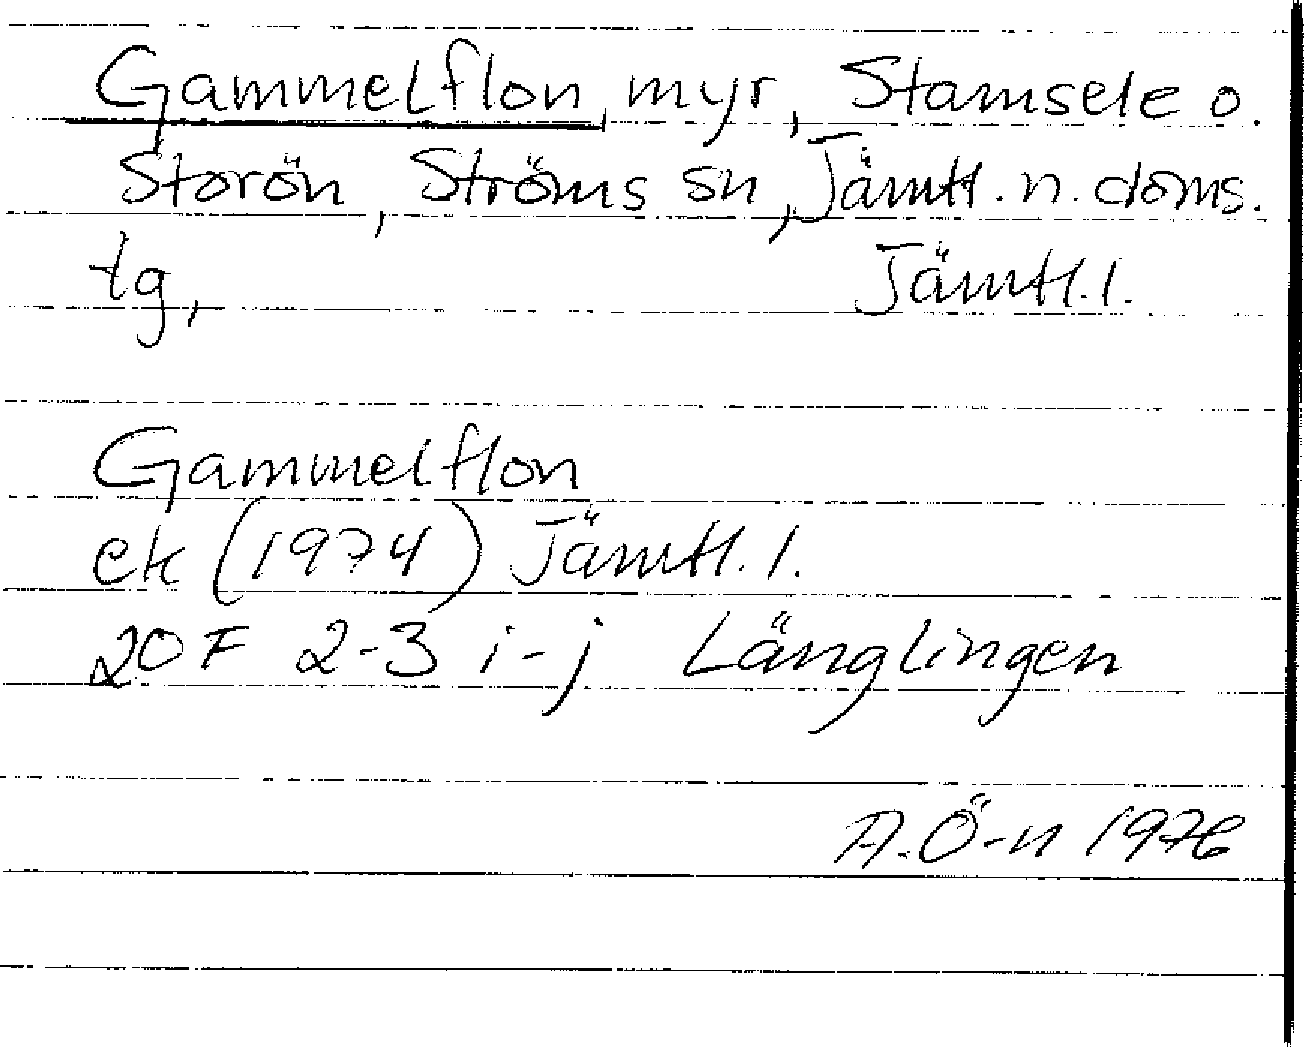 Gammelflon, myr, Stamsele o.
Storön, Ströms sn, Jämtl. n. doms.
tg, Jämtl. l.
Gammelflon
ek (1974) Jämtl. l.
20 F 2-3 i-j Länglingen
A. Ö-n 1976